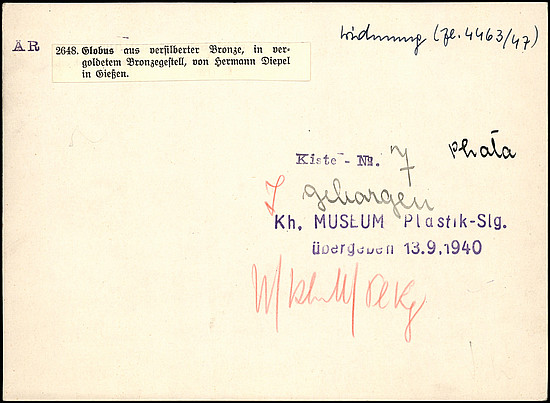 ÄR
2648. Globus aus versilberter Bronze, in ver-
goldetem Bronzegestell, von Hermann Diepel
in Gießen.
Widmung (Zl. 4463/47)
Kiste - No. 7
Photo
J geborgen
Kh. MUSEUM Plastik-Slg.
übergeben 13.9.1940